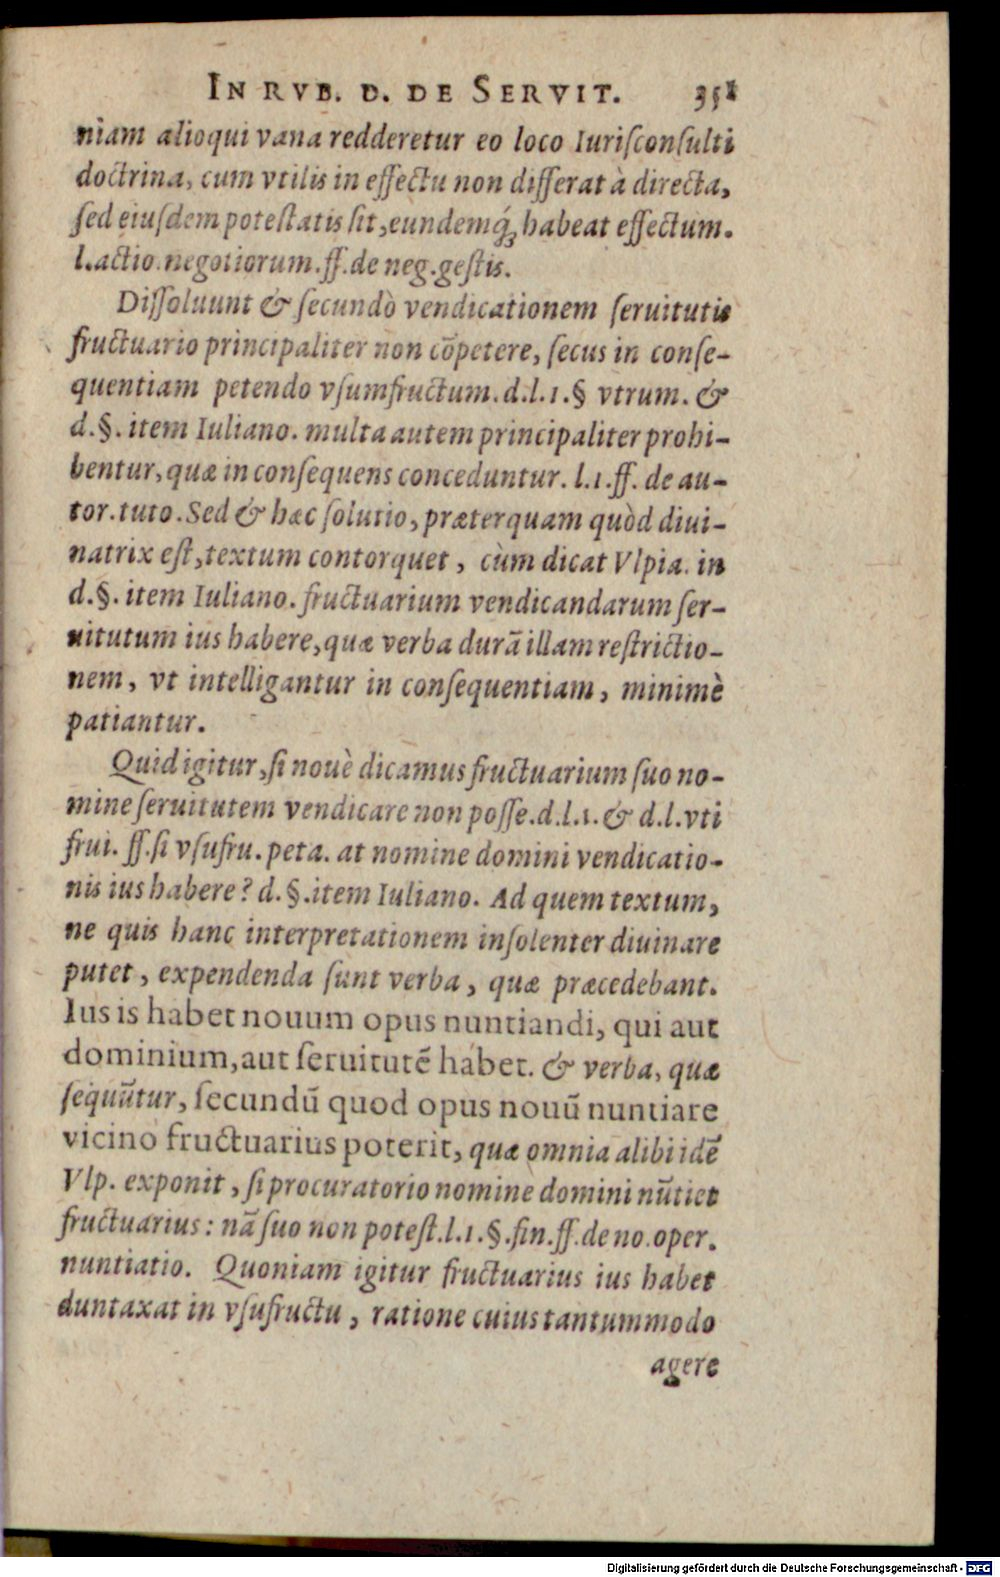 IN RVB. D. DE SERVIT. 351
niam alioqui vana redderetur eo loco Iuriſconſulti
doctrina, cum vtilis in effectu non differat à directa,
ſed eiuſdem poteſtatis ſit, eundemq́; habeat effectum.
l. actio. negotiorum. ff. de neg. geſtis.
Diſſoluunt & ſecundò vendicationem ſeruitutis
fructuario principaliter non cōpetere, ſecus in conſe-
quentiam petendo vſumfructum. d. l. 1. § vtrum. &
d. §. item Iuliano. multa autem principaliter prohi-
bentur, quæ in conſequens conceduntur. l. 1. ff. de au-
tor. tuto. Sed & hæc ſolutio, præterquam quòd diui-
natrix eſt, textum contorquet, cùm dicat Vlpia. in
d. §. item Iuliano. fructuarium vendicandarum ſer-
uitutum ius habere, quæ verba durā illam reſtrictio-
nem, vt intelligantur in conſequentiam, minimè
patiantur.
Quid igitur, ſi nouè dicamus fructuarium ſuo no-
mine ſeruitutem vendicare non poſſe. d. l. 1. & d. l. vti
frui. ff. ſi vſufru. peta. at nomine domini vendicatio-
nis ius habere? d. §. item Iuliano. Ad quem textum,
ne quis hanc interpretationem inſolenter diuinare
putet, expendenda ſunt verba, quæ præcedebant.
Ius is habet nouum opus nuntiandi, qui aut
dominium, aut ſeruitutē habet. & verba, quæ
ſequūtur, ſecundū quod opus nouū nuntiare
vicino fructuarius poterit, quæ omnia alibi idē
Vlp. exponit, ſi procuratorio nomine domini nūtiet
fructuarius: nā ſuo non poteſt. l. 1. §. fin. ff. de no. oper.
nuntiatio. Quoniam igitur fructuarius ius habet
duntaxat in vſufructu, ratione cuius tantummodo
agere
Digitalisierung gefördert durch die Deutsche Forschungsgemeinschaft - DFG